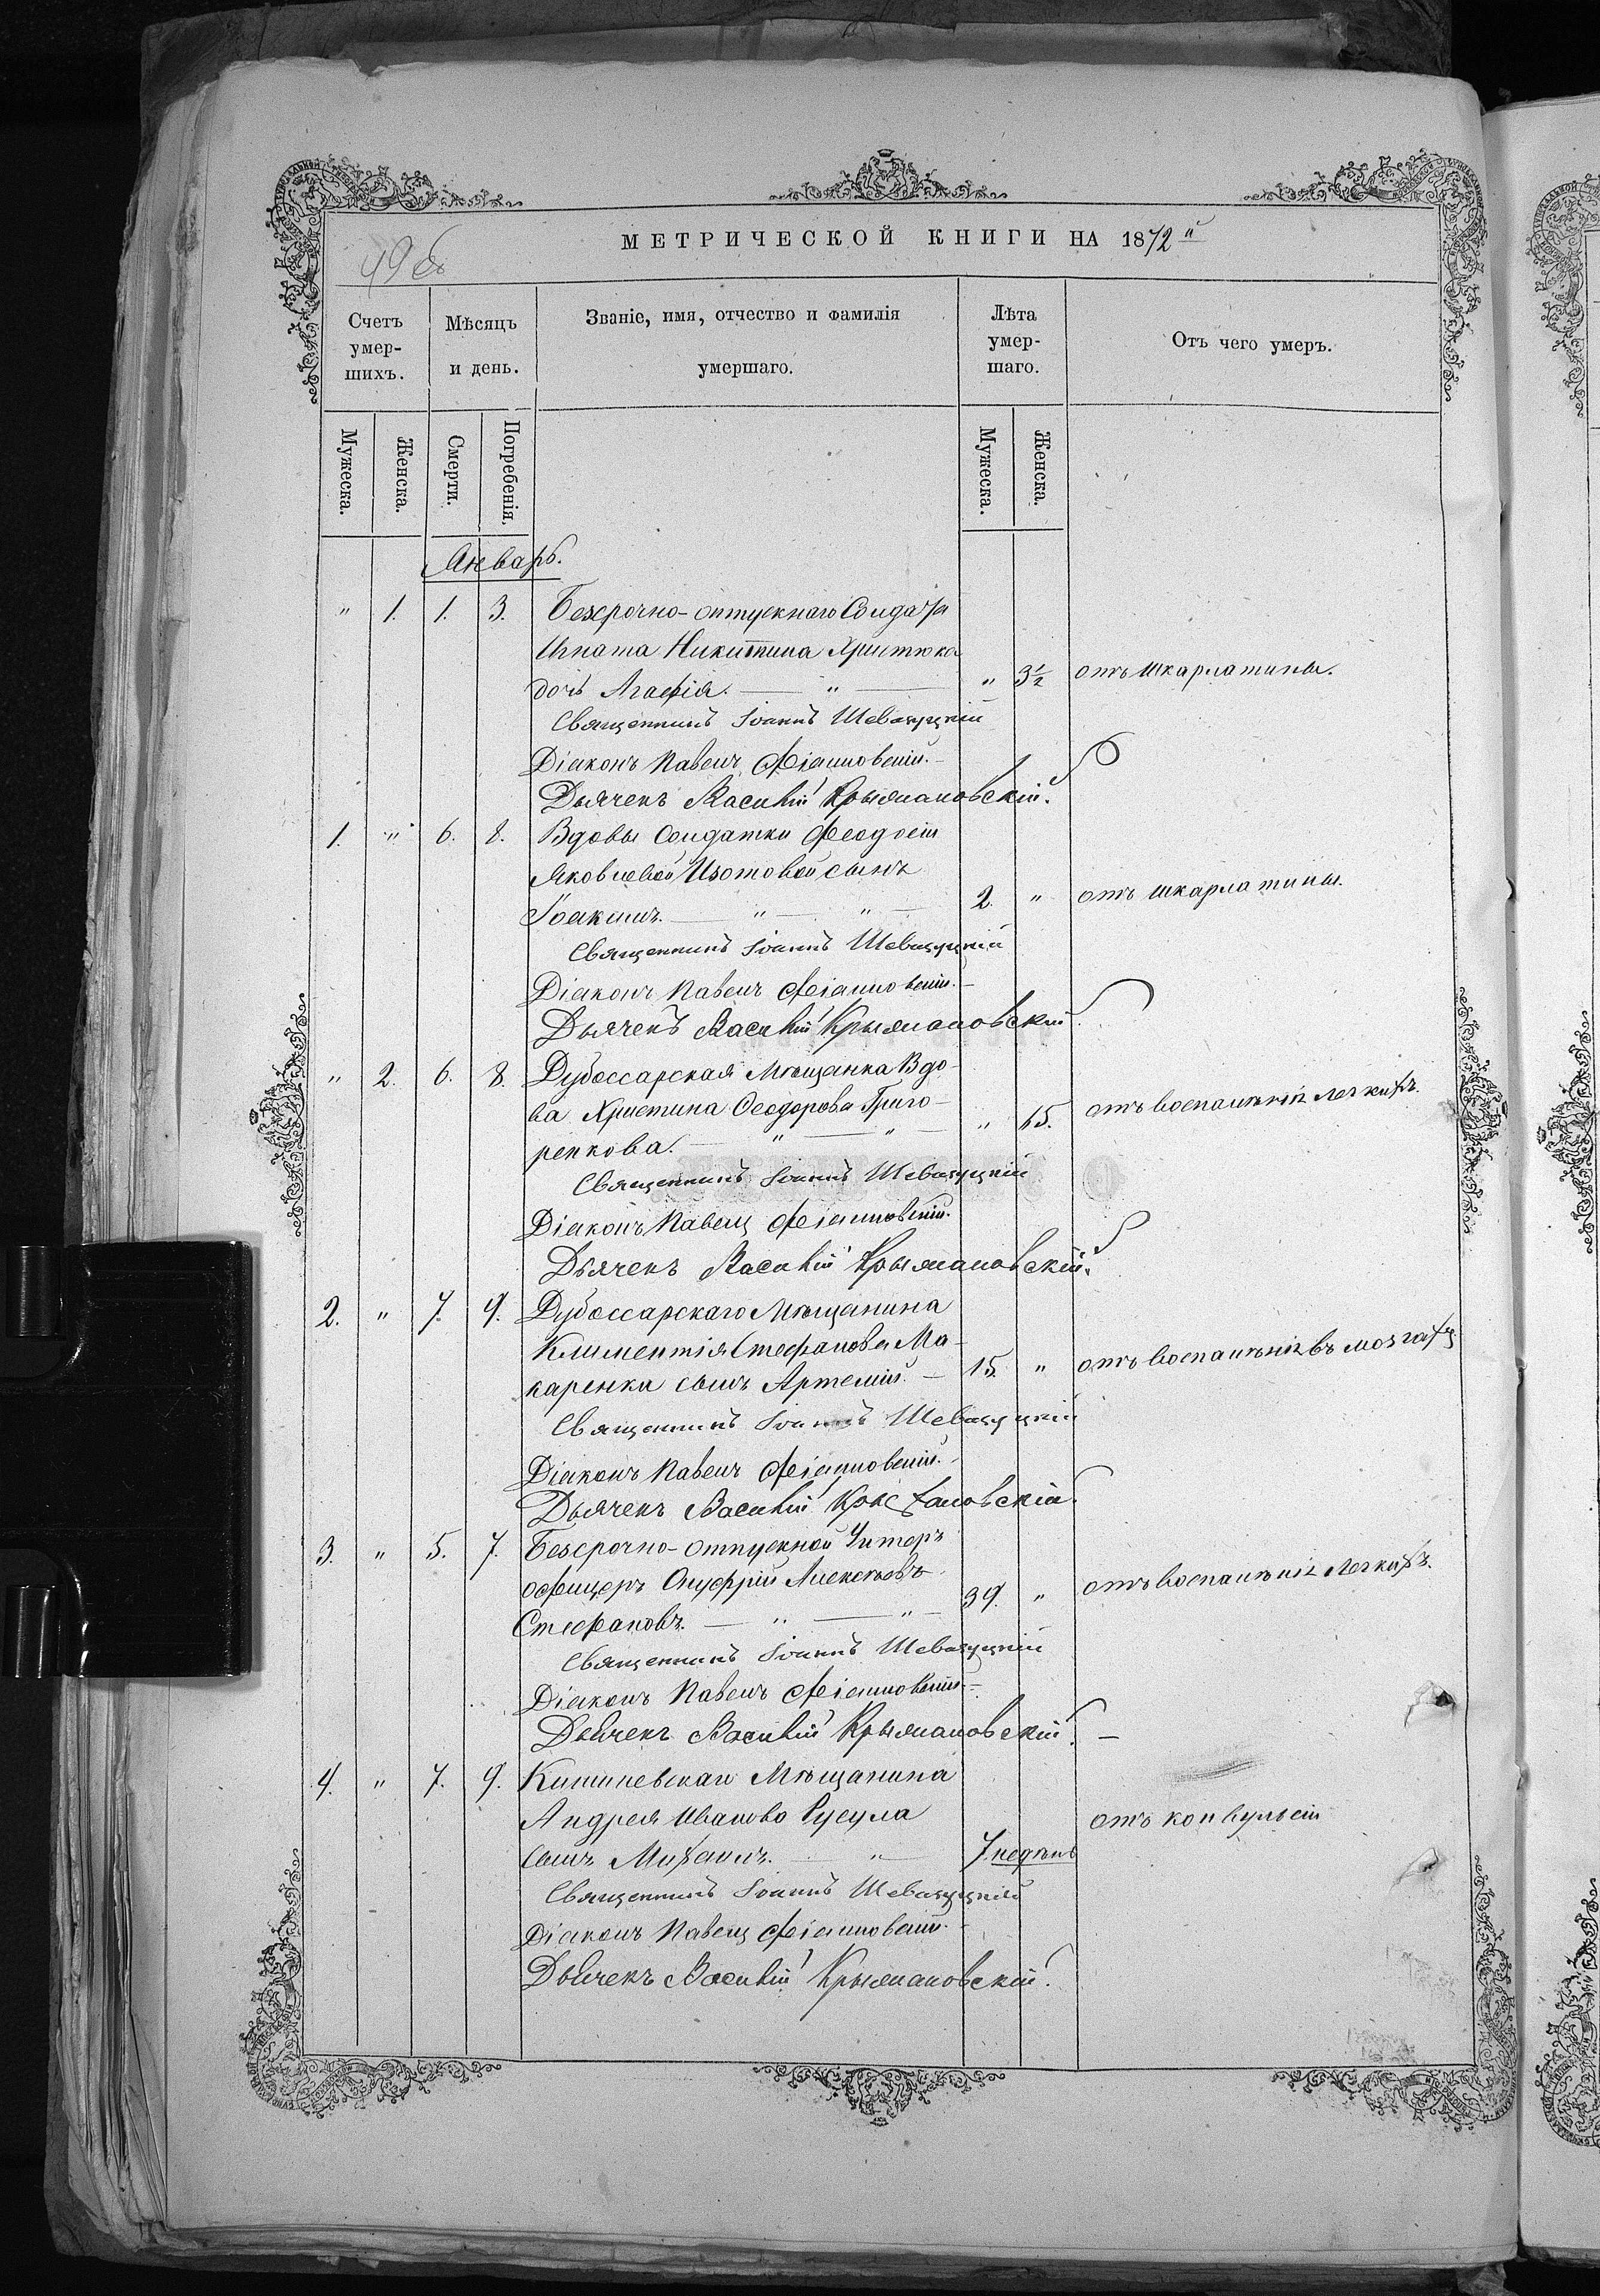 МЕТРИЧЕСКОЙ КНИГИ НА 1872 й
49 об
Счетъ умер-шихъ.
Мѣсяцъ и день.
Званіе, имя, отчество и фамилія умершаго.
Лѣта умер-шаго.
Отъ чего умеръ.
Мужеска.
Женска.
Смерти.
Погребенія.
Мужеска.
Женска.
Январь.
" 1. 1. 3. Безсрочно-отпускнаго Солдата
Игната Никитина Христюка
дочь Агафія. — " — " 3½ отъ шкарлатины.
Священникъ Іоаннъ
Діаконъ Павелъ
Дьячекъ Василій Крыжановскій.
1. " 6. 8. Вдовы Солдатки Феодосіи
Яковлевой Изотовой сынъ
Іоакимъ. — " — " — 2. " отъ шкарлатины.
Священникъ Іоаннъ
Діаконъ Павелъ
Дьячекъ Василій Крыжановскій.
" 2. 6. 8. Дубоссарская Мѣщанка Вдо-
ва Христина Феодорова Григо-
ренкова. — " — " — " 65. отъ воспаленія легкихъ.
Священникъ Іоаннъ
Діаконъ Павелъ
Дьячекъ Василій Крыжановскій.
2. " 7. 9. Дубоссарскаго Мѣщанина
Климентія Стефанова Ма-
каренка сынъ Артемій. — 15. " отъ воспаленія въ мозгахъ
Священникъ Іоаннъ
Діаконъ Павелъ
Дьячекъ Василій Крыжановскій.
3. " 5. 7. Безсрочно-отпускной Унтеръ
офицеръ Онуфрій Алексѣевъ
Стефановъ. — " — " — 39. " отъ воспаленія легкихъ.
Священникъ Іоаннъ
Діаконъ Павелъ
Дьячекъ Василій Крыжановскій. —
4. " 7. 9. Кишиневскаго Мѣщанина
Андрея Иванова Русула
сынъ Михаилъ. — " — 7 недѣль отъ конвульсіи
Священникъ Іоаннъ
Діаконъ Павелъ
Дьячекъ Василій Крыжановскій.